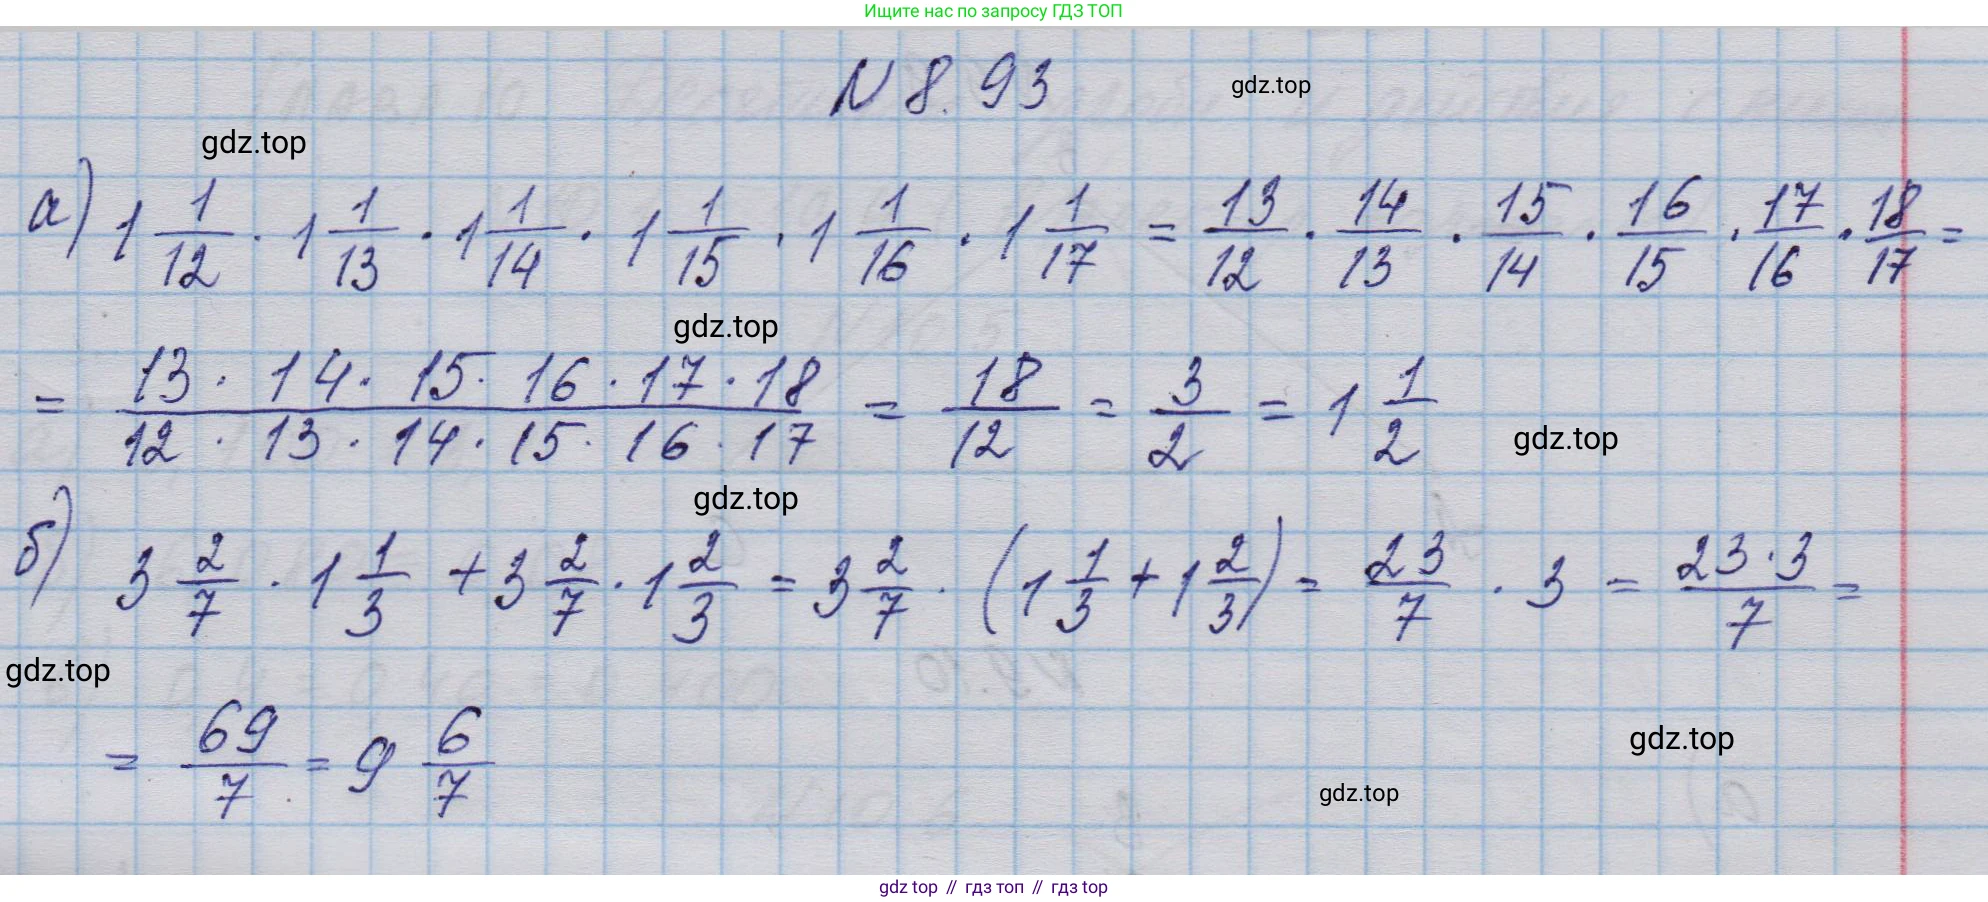 Ищите нас по запросу ГДЗ ТОП
N 8.93
gdz.top
gdz.top
а) 1 1/12 · 1 1/13 · 1 1/14 · 1 1/15 · 1 1/16 · 1 1/17 = 13/12 · 14/13 · 15/14 · 16/15 · 17/16 · 18/17 =
gdz.top
= (13 · 14 · 15 · 16 · 17 · 18)/(12 · 13 · 14 · 15 · 16 · 17) = 18/12 = 3/2 = 1 1/2
gdz.top
gdz.top
б) 3 2/7 · 1 1/3 + 3 2/7 · 1 2/3 = 3 2/7 · (1 1/3 + 1 2/3) = 23/7 · 3 = (23 · 3)/7 =
gdz.top
= 69/7 = 9 6/7
gdz.top
gdz.top
gdz top // гдз топ // гдз top